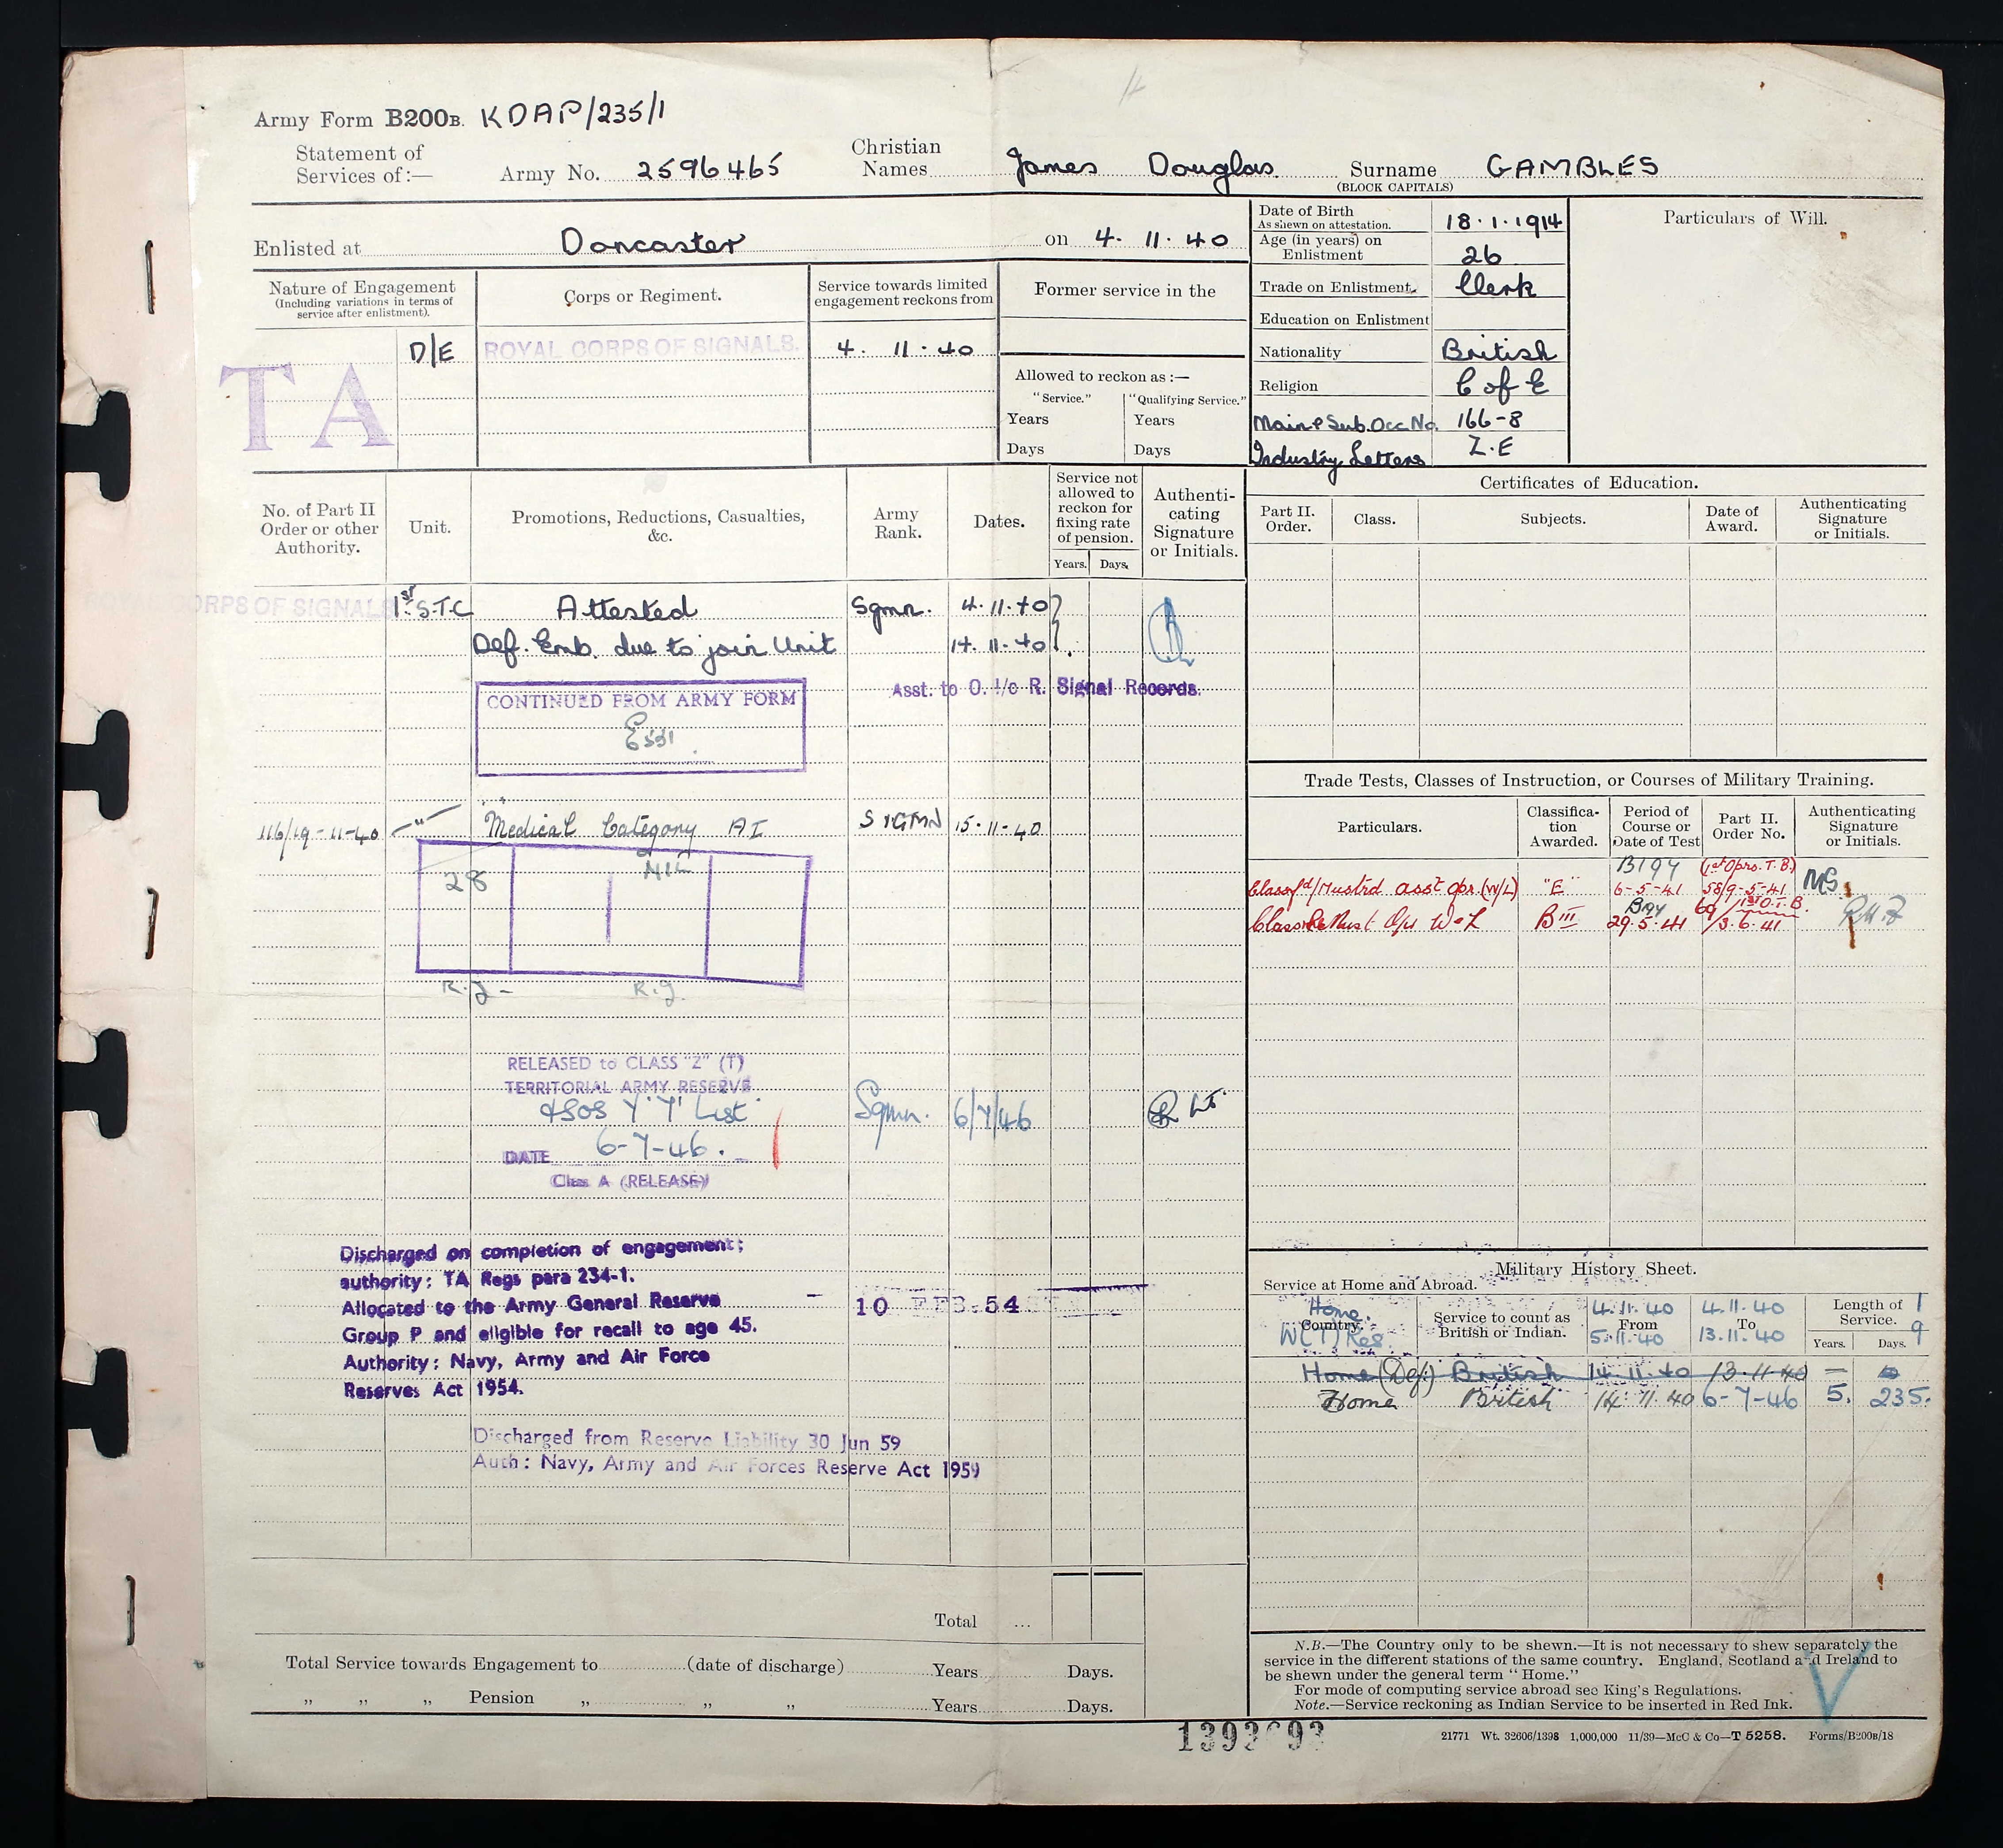 Army Form B200B. KDAP/235/1
Statement of Services of:— Army No. 2596465 Christian Names James Douglas Surname GAMBLES
(BLOCK CAPITALS)
Enlisted at Doncaster on 4. 11. 40
Nature of Engagement
(Including variations in terms of service after enlistment).
Corps or Regiment.
Service towards limited engagement reckons from
Former service in the
TA
D/E ROYAL CORPS OF SIGNALS. 4. 11. 40
Allowed to reckon as :—
"Service." "Qualifying Service."
Years Years
Days Days
Date of Birth
As shewn on attestation. 18.1.1914
Age (in years) on Enlistment 26
Trade on Enlistment Clerk
Education on Enlistment
Nationality British
Religion C of E
Main & Sub. Occ No. 166-8
Industry Letters Z.E
Particulars of Will.
No. of Part II Order or other Authority.
Unit.
Promotions, Reductions, Casualties, &c.
Army Rank.
Dates.
Service not allowed to reckon for fixing rate of pension.
Years. Days.
Authenticating Signature or Initials.
ROYAL CORPS OF SIGNALS 1st S.T.C Attested Sgmn. 4.11.40
Def. Emb. due to join Unit 14.11.40
Asst. to O. i/c R. Signal Records.
CONTINUED FROM ARMY FORM
E531
116/19-11-40 " Medical Category A1 SIGMN 15-11-40
28
R.J. R.J.
RELEASED to CLASS "Z" (T)
TERRITORIAL ARMY RESERVE
&SOS Y 'Y' List Sgmn. 6/7/46
DATE 6-7-46.
Class A (RELEASE)
Discharged on completion of engagement;
authority: TA Regs para 234-1.
Allocated to the Army General Reserve 10 FEB. 54
Group P and eligible for recall to age 45.
Authority: Navy, Army and Air Force
Reserves Act 1954.
Discharged from Reserve Liability 30 Jun 59
Auth: Navy, Army and Air Forces Reserve Act 1959
Total ...
Total Service towards Engagement to (date of discharge) Years Days.
" " " Pension " " " Years Days.
Certificates of Education.
Part II. Order.
Class.
Subjects.
Date of Award.
Authenticating Signature or Initials.
Trade Tests, Classes of Instruction, or Courses of Military Training.
Particulars.
Classification Awarded.
Period of Course or Date of Test
Part II. Order No.
Authenticating Signature or Initials.
B194 (1st Oprs. T.B.)
Classfd/Mustrd asst opr. (W/L) "E" 6-5-41 58/9-5-41 MS
B III 29.5.41 69/3.6.41
Military History Sheet.
Service at Home and Abroad.
Country.
Service to count as British or Indian.
From
To
Length of Service.
Years. Days.
Home 4.11.40 4.11.40 1
W(T) Res 5.11.40 13.11.40 9
Home (Def.) British 14.11.40 13.11.40
Home British 14.11.40 6-7-46 5. 235.
N.B.—The Country only to be shewn.—It is not necessary to shew separately the
service in the different stations of the same country. England, Scotland and Ireland to
be shewn under the general term "Home."
For mode of computing service abroad see King's Regulations.
Note.—Service reckoning as Indian Service to be inserted in Red Ink.
21771 Wt. 32606/1398 1,000,000 11/39—McC & Co—T 5258. Forms/B200B/18